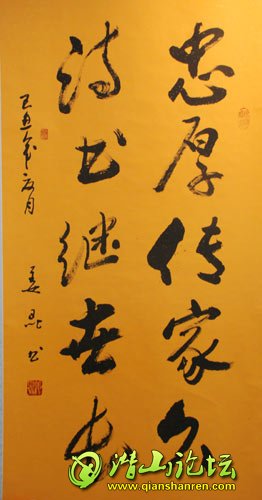 忠厚传家久
诗书继世长
己丑年夏月
姜昆书
潜山论坛
www.qianshanren.com